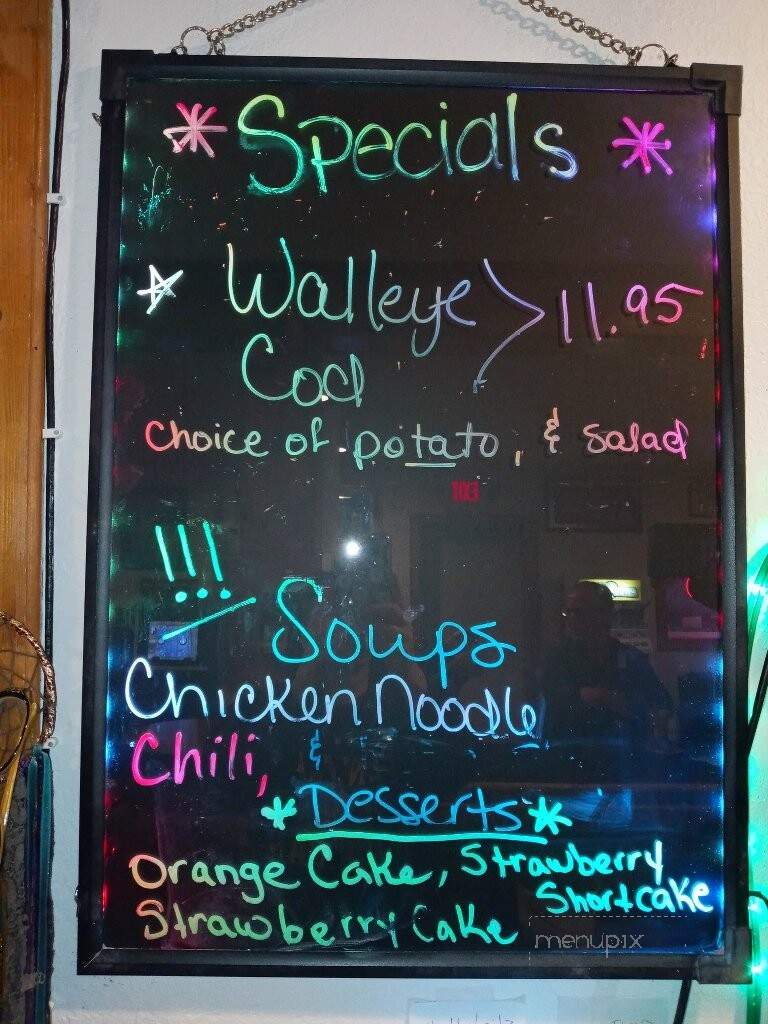 * Specials *
☆ Walleye > 11.95
Cod
Choice of potato, & salad
!!!
Soups
Chicken Noodle
Chili, &
* Desserts *
Orange Cake, Strawberry
Shortcake
Strawberry Cake
menupix